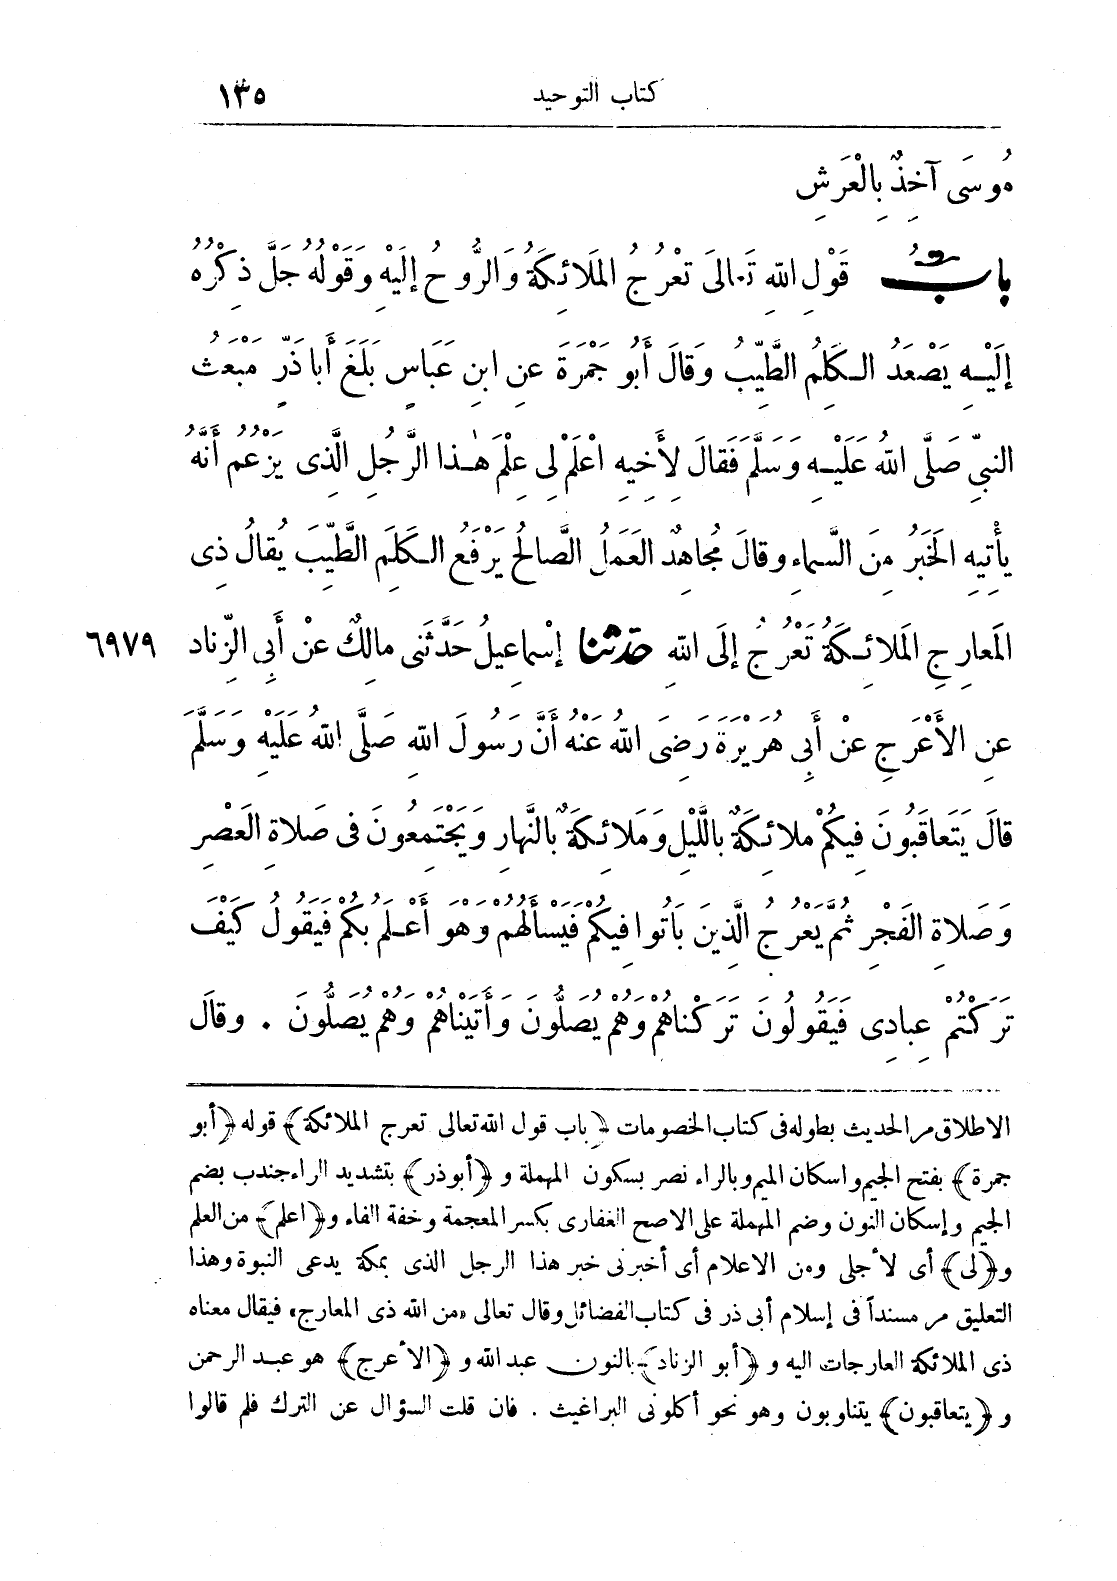 كتاب التوحيد ١٣٥
مُوسَى آخِذٌ بِالْعَرْشِ
بابٌ قَوْلِ اللهِ تَعَالَى تَعْرُجُ المَلَائِكَةُ وَالرُّوحُ إِلَيْهِ وَقَوْلُهُ جَلَّ ذِكْرُهُ
إِلَيْهِ يَصْعَدُ الكَلِمُ الطَّيِّبُ وَقَالَ أَبُو جَمْرَةَ عَنِ ابنِ عَبَاسٍ بَلَغَ أَبَا ذَرٍّ مَبْعَثُ
النبىِّ صَلَّى اللهُ عَلَيْهِ وَسَلَّمَ فَقَالَ لِأَخِيهِ اعْلَمْ لِى عِلْمَ هٰذا الرَّجُلِ الَّذِى يَزْعُمُ أَنَّهُ
يأْتِيهِ الخَبَرُ مِنَ السَّماءِ وقالَ مُجاهِدٌ العَمَلُ الصَّالحُ يَرْفَعُ الكَلِمَ الطَّيِّبَ يُقالُ ذِى
المَعارِجِ المَلائِكَةُ تَعْرُجُ إِلَى اللهِ حَدَّثَنَا إسْماعِيلُ حَدَّثَنى مالِكٌ عَنْ أَبِى الزِّناد ٦٩٧٩
عنِ الأَعْرَجِ عنْ أَبِى هُرَيْرَةَ رَضِىَ اللهُ عَنْهُ أَنَّ رَسُولَ اللهِ صَلَّى اللهُ عَلَيْهِ وَسَلَّمَ
قالَ يَتَعاقَبُونَ فِيكُمْ مَلائِكَةٌ باللَّيْلِ وَمَلائِكَةٌ بالنَّهارِ وَيَجْتَمِعُونَ فى صَلاةِ العَصْرِ
وَصَلاةِ الفَجْرِ ثُمَّ يَعْرُجُ الَّذِينَ بَاتُوا فِيكُمْ فَيَسْأَلُهُمْ وهُوَ أَعْلَمُ بِكُمْ فَيَقُولُ كَيْفَ
تَرَكْتُمْ عِبادِى فَيَقُولُونَ تَرَكْناهُمْ وَهُمْ يُصَلُّونَ وَأَتَيْناهُمْ وَهُمْ يُصَلُّونَ . وقالَ
الاطلاق مر الحديث بطوله فى كتاب الخصومات ﴿باب قول الله تعالى تعرج الملائكة﴾ قوله ﴿أبو
جمرة﴾ بفتح الجيم واسكان الميم وبالراء نصر بسكون المهملة و ﴿أبو ذر﴾ بتشديد الراء جندب بضم
الجيم وإسكان النون وضم المهملة على الاصح الغفارى بكسر المعجمة وخفة الفاء و﴿اعلم﴾ من العلم
و﴿لى﴾ أى لأجلى ومن الاعلام أى أخبرنى خبر هذا الرجل الذى بمكة يدعى النبوة وهذا
التعليق مر مسنداً فى إسلام أبى ذر فى كتاب الفضائل وقال تعالى «من الله ذى المعارج» فيقال معناه
ذى الملائكة العارجات اليه و ﴿أبو الزناد﴾ بالنون عبد الله و ﴿الأعرج﴾ هو عبد الرحمن
و ﴿يتعاقبون﴾ يتناوبون وهو نحو أكلونى البراغيث . فان قلت السؤال عن الترك فلم قالوا